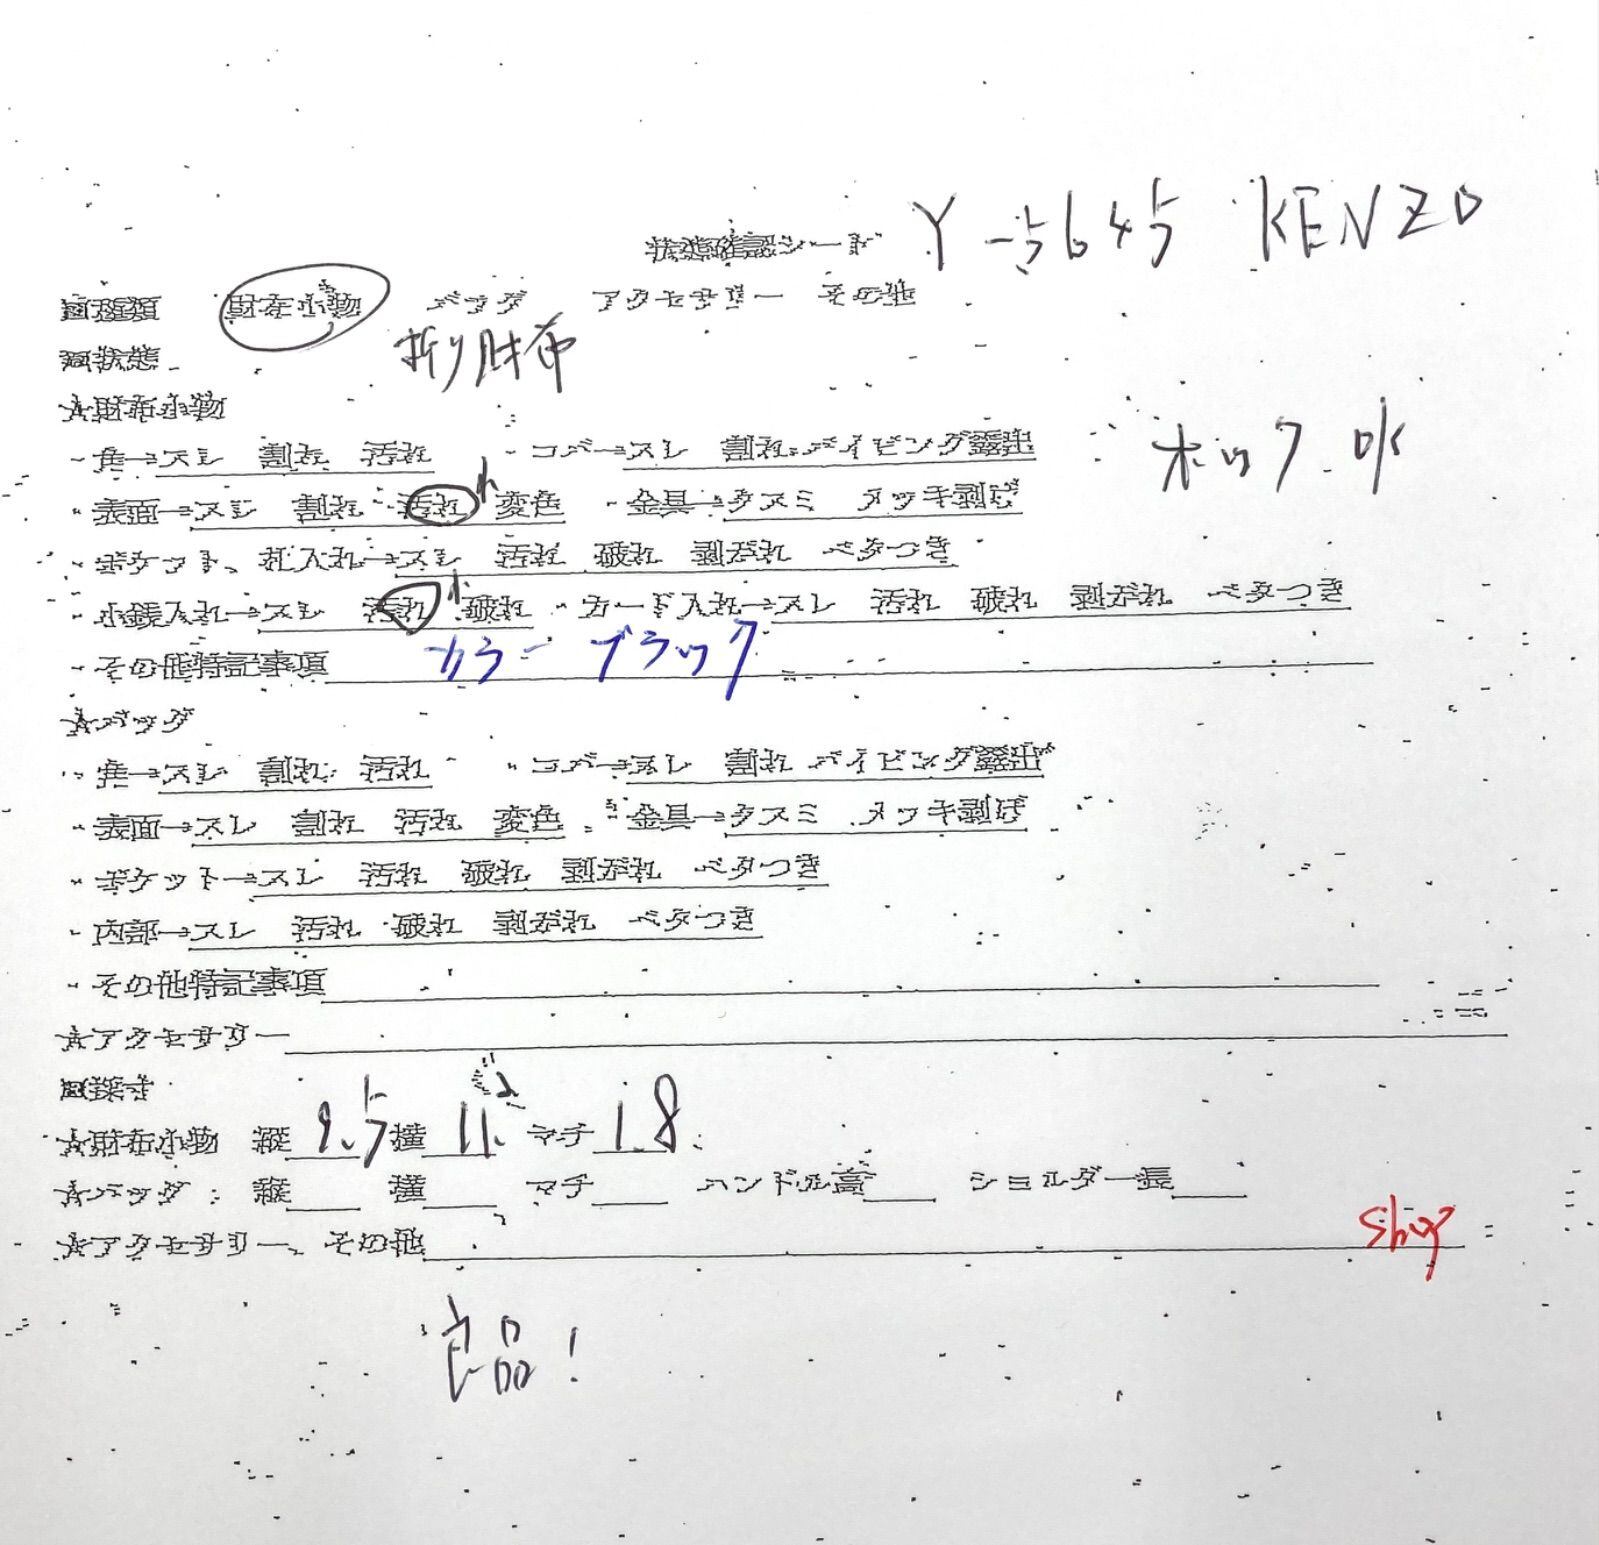 状態確認シート Y-5645 KENZO
□種類 財布小物 バッグ アクセサリー その他
□状態 折り財布
☆財布小物
・角→スレ 割れ 汚れ ・コバ→スレ 割れ パイピング露出 ホック OK
・表面→スレ 割れ 汚れ 小 変色 ・金具→クスミ メッキ剥げ
・ポケット、札入れ→スレ 汚れ 破れ 剥がれ ベタつき
・小銭入れ→スレ 汚れ 小 破れ ・カード入れ→スレ 汚れ 破れ 剥がれ ベタつき
・その他特記事項 カラー ブラック
☆バッグ
・角→スレ 割れ 汚れ ・コバ→スレ 割れ パイピング露出
・表面→スレ 割れ 汚れ 変色 ・金具→クスミ メッキ剥げ
・ポケット→スレ 汚れ 破れ 剥がれ ベタつき
・内部→スレ 汚れ 破れ 剥がれ ベタつき
・その他特記事項
☆アクセサリー
□採寸
☆財布小物 縦 9.5 横 11. マチ 1.8
☆バッグ 縦 横 マチ ハンドル高 ショルダー長
☆アクセサリー、その他
良品!